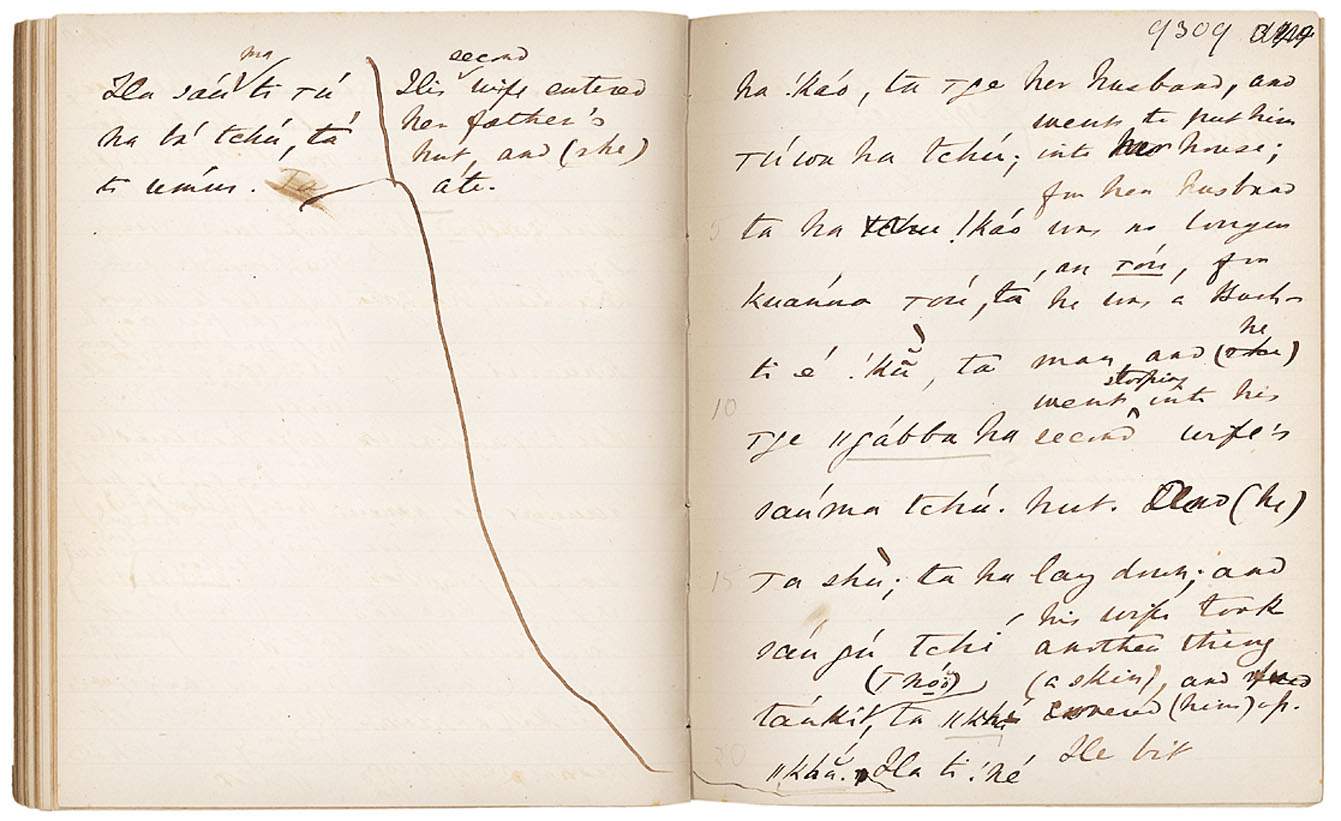 ma
Ha saú ti τú
ha bá tchú, tá
ti umúm. Ta
second
His wife entered
her father's
hut, and (she)
ate.
9309
ha !káo, ta τge her husband, and
went to put him
τúwa ha tchú; into her house;
for her husband
5 ta ha tchu !káo was no longer
an τoú, for
kuánna τoú, tá he was a Bush-
he
ti é !kũ, ta man, and (she)
stooping
10 went into his
τge ‖gábba ha second wife's
saúma tchú. hut. And (he)
15 Ta shù; ta ha lay down; and
his wife took
saú gú tchi another thing
(τnóo) (a skin), and
taúkií, ta ‖khú covered (him) up.
20 ‖khã́. Ha ti !né He bit